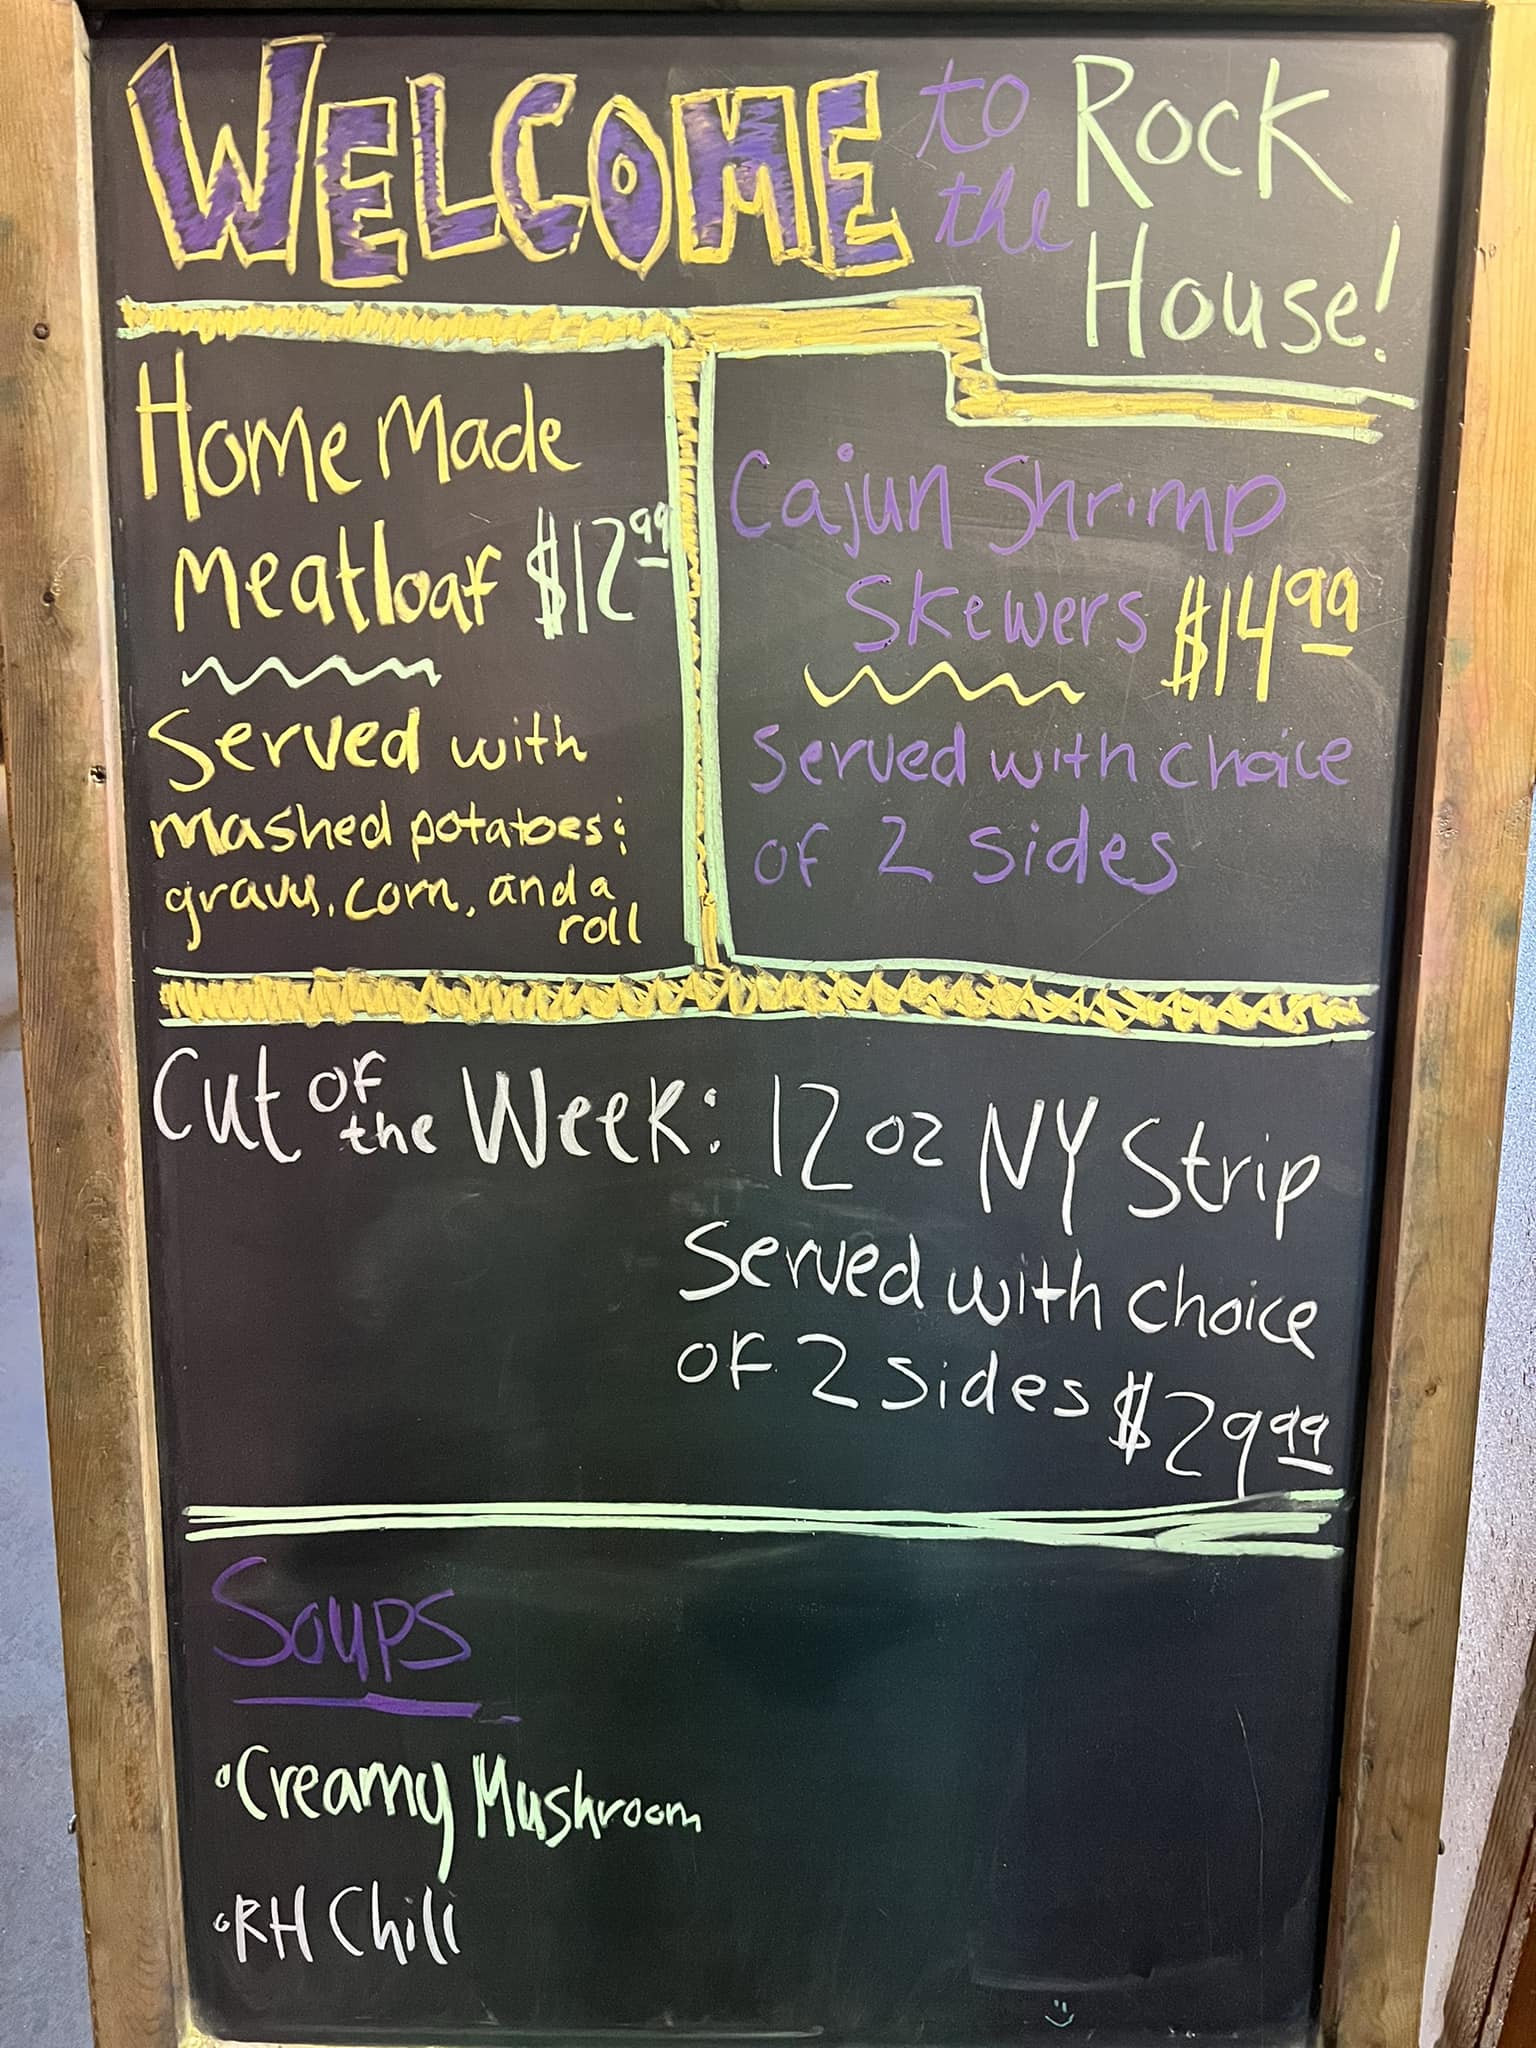 WELCOME to the Rock House!
Home Made
Meatloaf $12.99
Served with
mashed potatoes;
gravy, corn, and a
roll
Cajun Shrimp
Skewers $14.99
Served with choice
of 2 sides
Cut of the Week: 12 oz NY Strip
Served with choice
of 2 sides $29.99
Soups
◦Creamy Mushroom
◦RH Chili